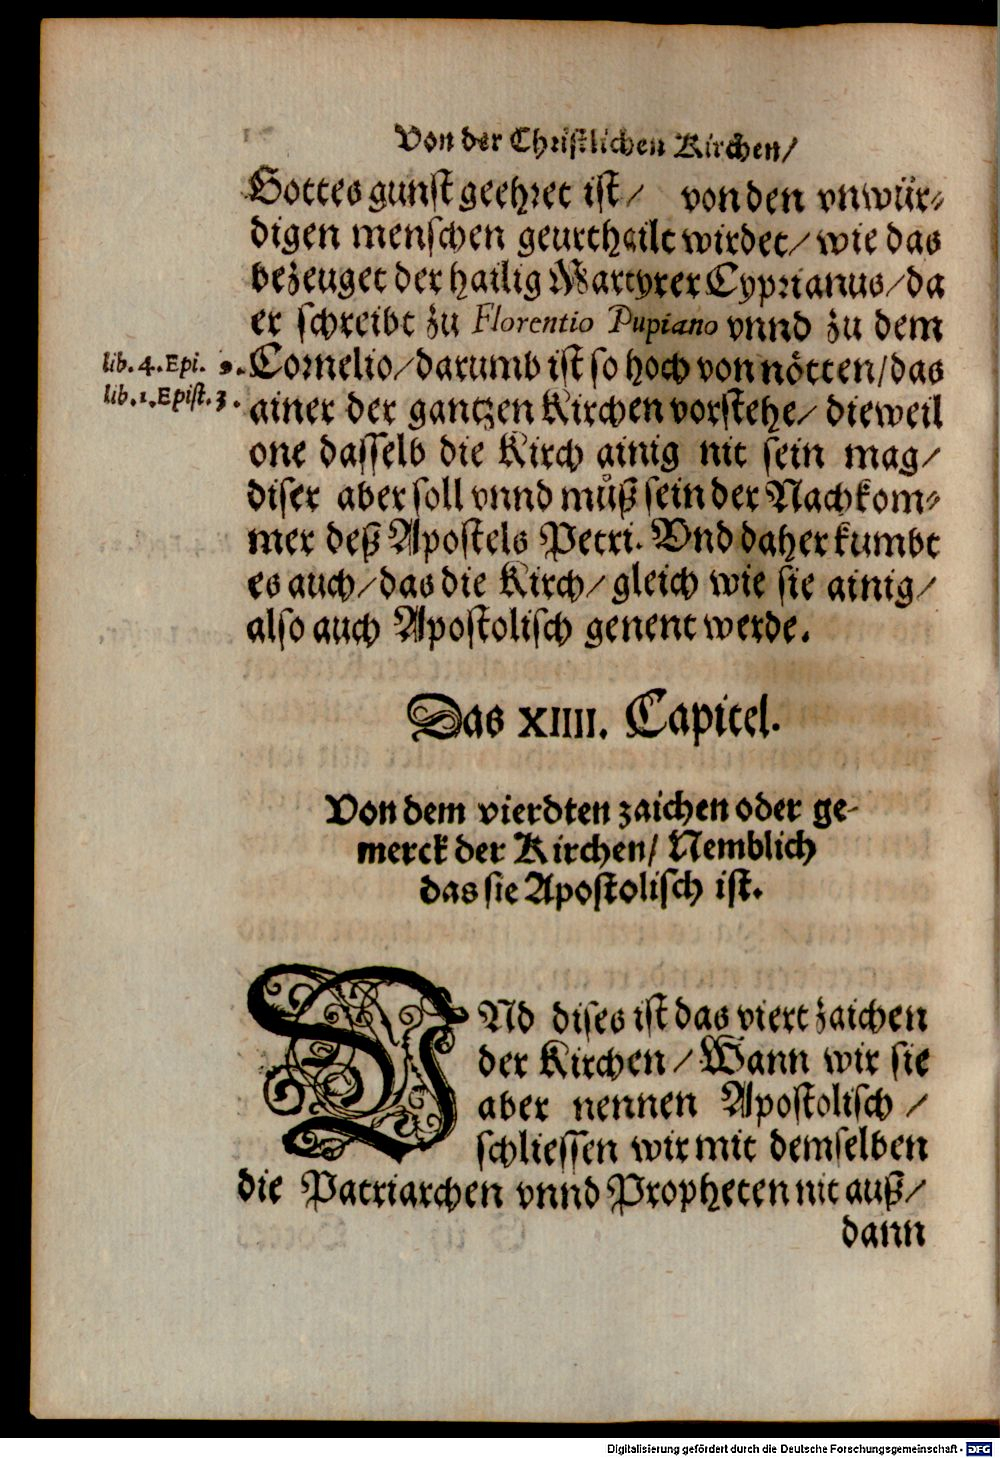 Von der Christlichen Kirchen/
Gottes gunst geehret ist/ von den vnwür-
digen menschen geurthailt wirdet/ wie das
bezeuget der hailig Martyrer Cyprianus/ da
er schreibt zu Florentio Pupiano vnnd zu dem
lib. 4. Epi. 9.
Cornelio/ darumb ist so hoch von nötten/ das
lib. 1. Epist. 3.
ainer der gantzen Kirchen vorstehe/ dieweil
one dasselb die Kirch ainig nit sein mag/
diser aber soll vnnd můß sein der Nachkom-
mer deß Apostels Petri. Vnd daher kumbt
es auch/ das die Kirch/ gleich wie sie ainig/
also auch Apostolisch genent werde.
Das XIIII. Capitel.
Von dem vierdten zaichen oder ge-
merck der Kirchen/ Nemblich
das sie Apostolisch ist.
VNd dises ist das viert zaichen
der Kirchen/ Wann wir sie
aber nennen Apostolisch/
schliessen wir mit demselben
die Patriarchen vnnd Propheten nit auß/
dann
Digitalisierung gefördert durch die Deutsche Forschungsgemeinschaft - DFG